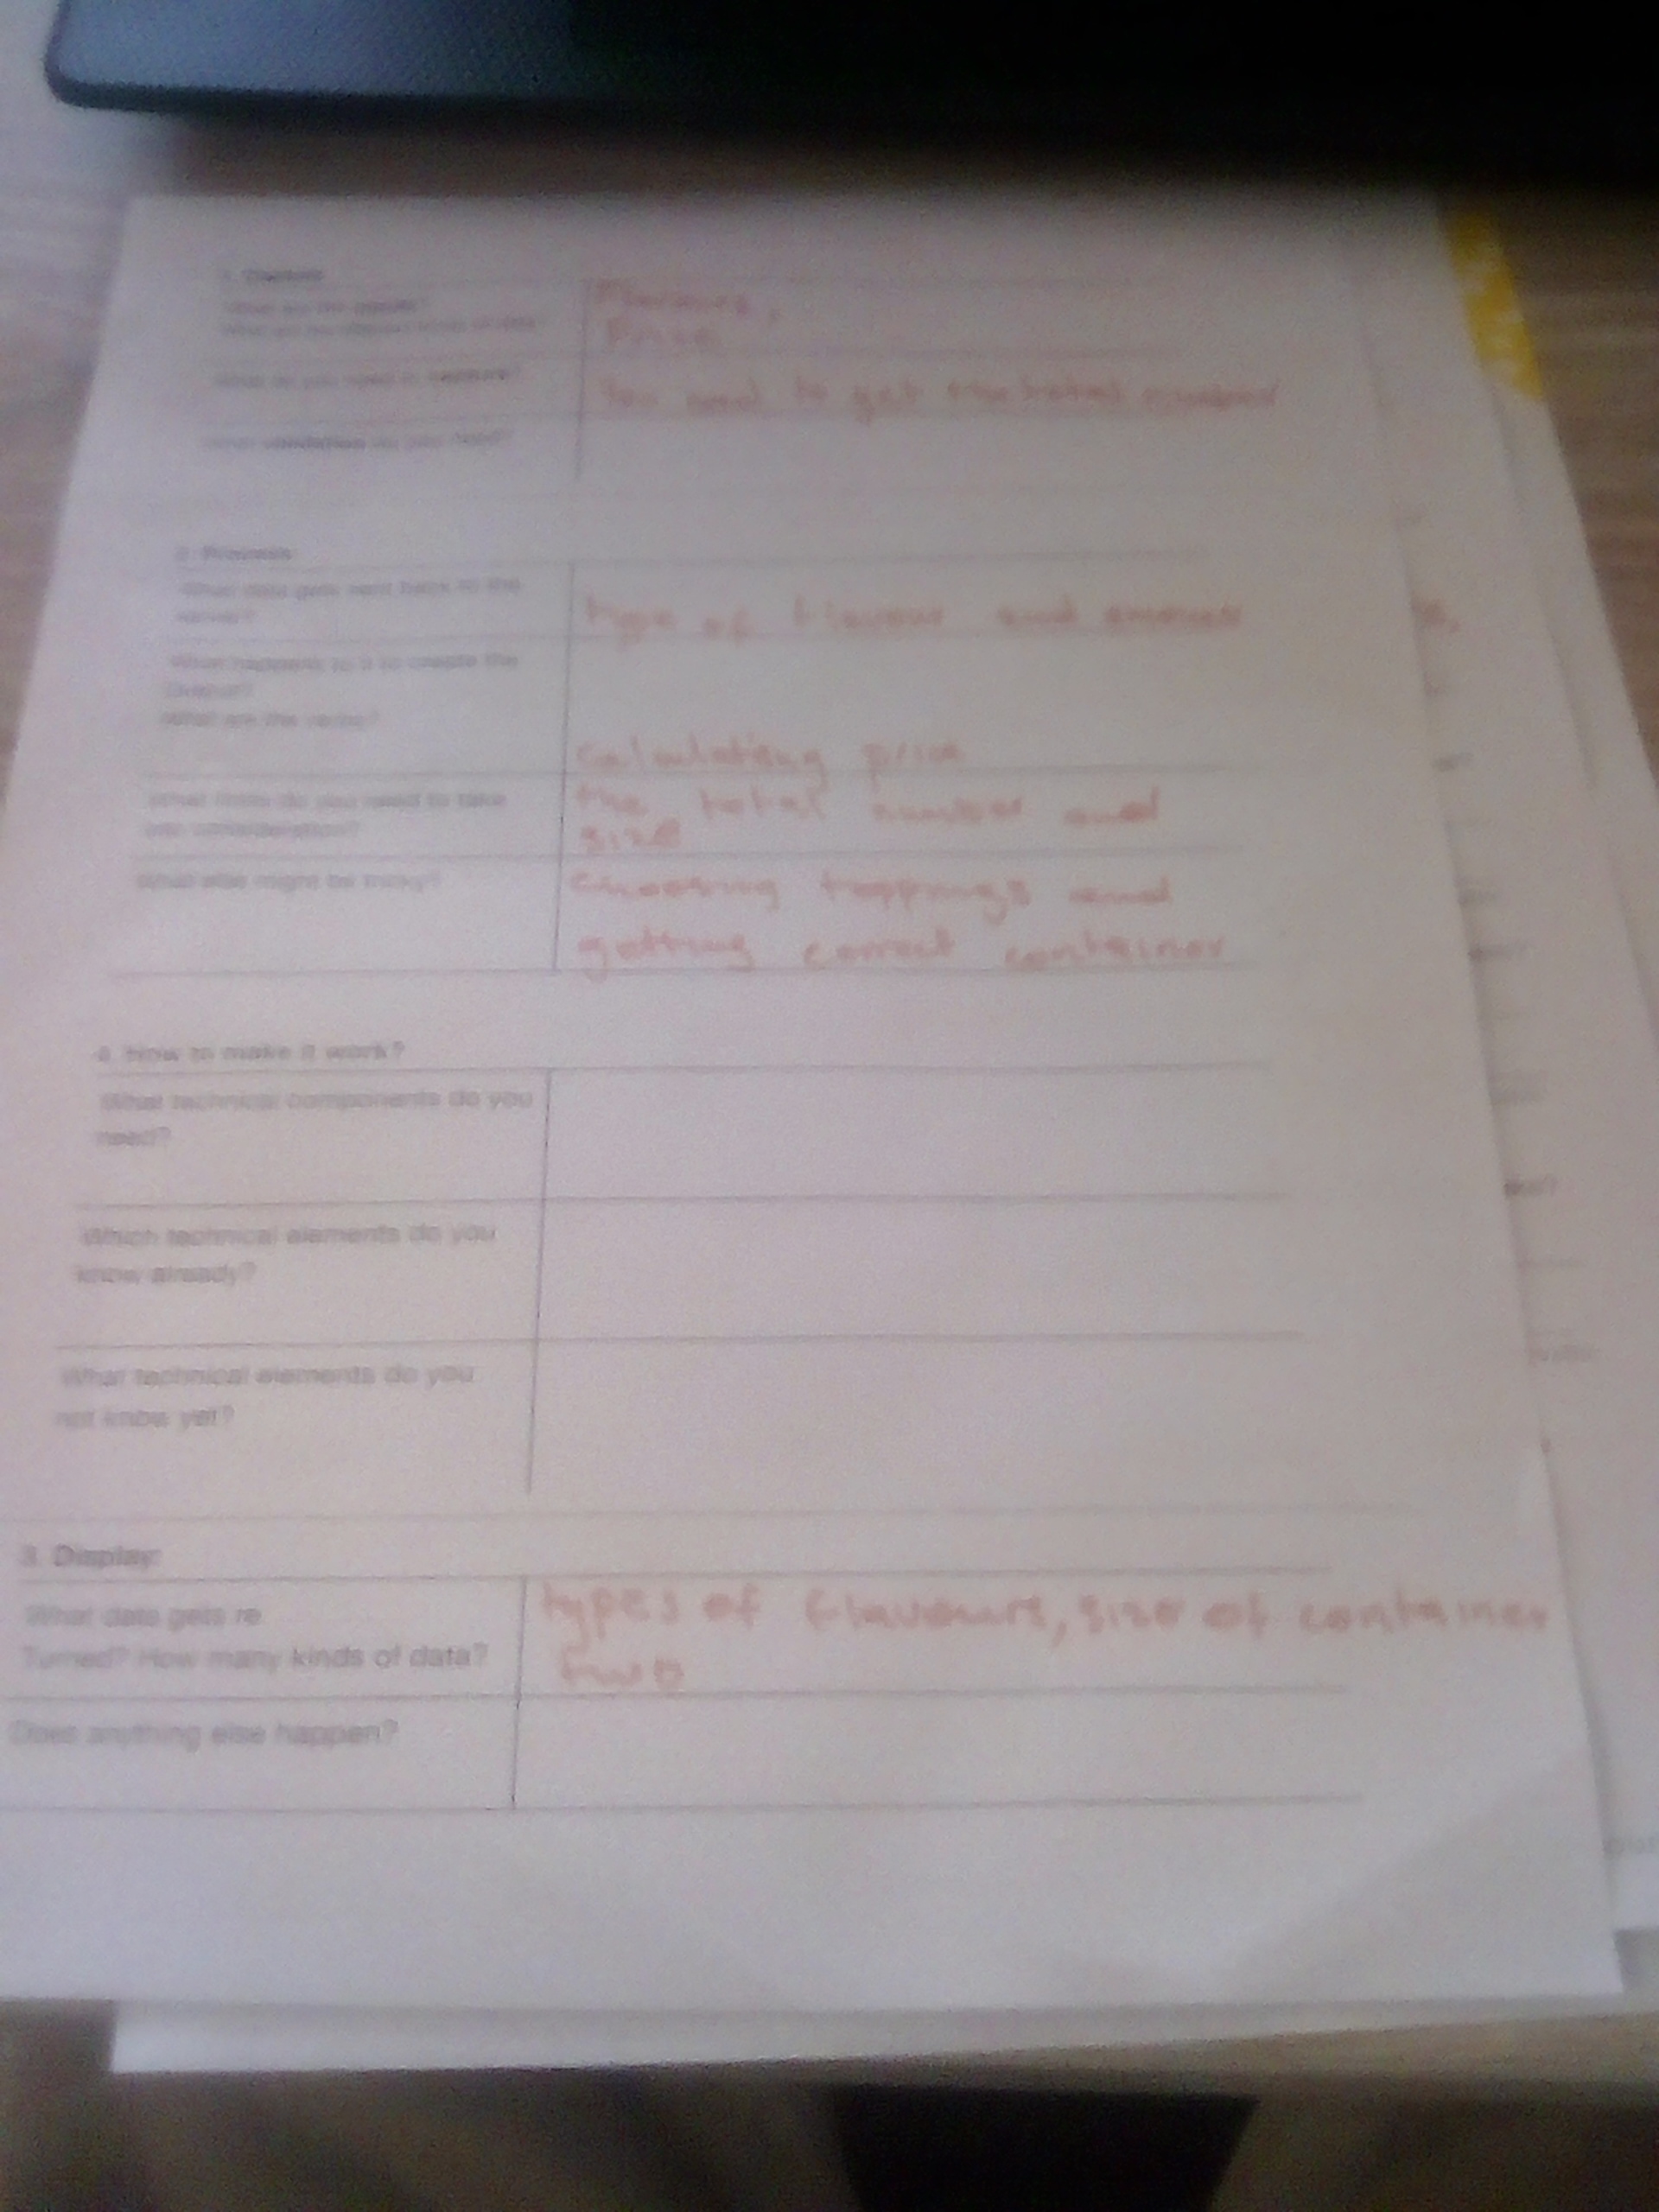 What are the
What do you need to capture?
You need to get the total number
What validation do you need?
2. Process
What data gets sent back to the
server?
type of flavour and amount
What happens to it to create the
Output?
What are the verbs?
calculating price
What limits do you need to take
into consideration?
the total number and
size
What else might be tricky?
choosing toppings and
getting correct container
4. How to make it work?
What technical components do you
need?
Which technical elements do you
know already?
What technical elements do you
not know yet?
3. Display:
What data gets re
Turned? How many kinds of data?
types of flavours, size of container
two
Does anything else happen?